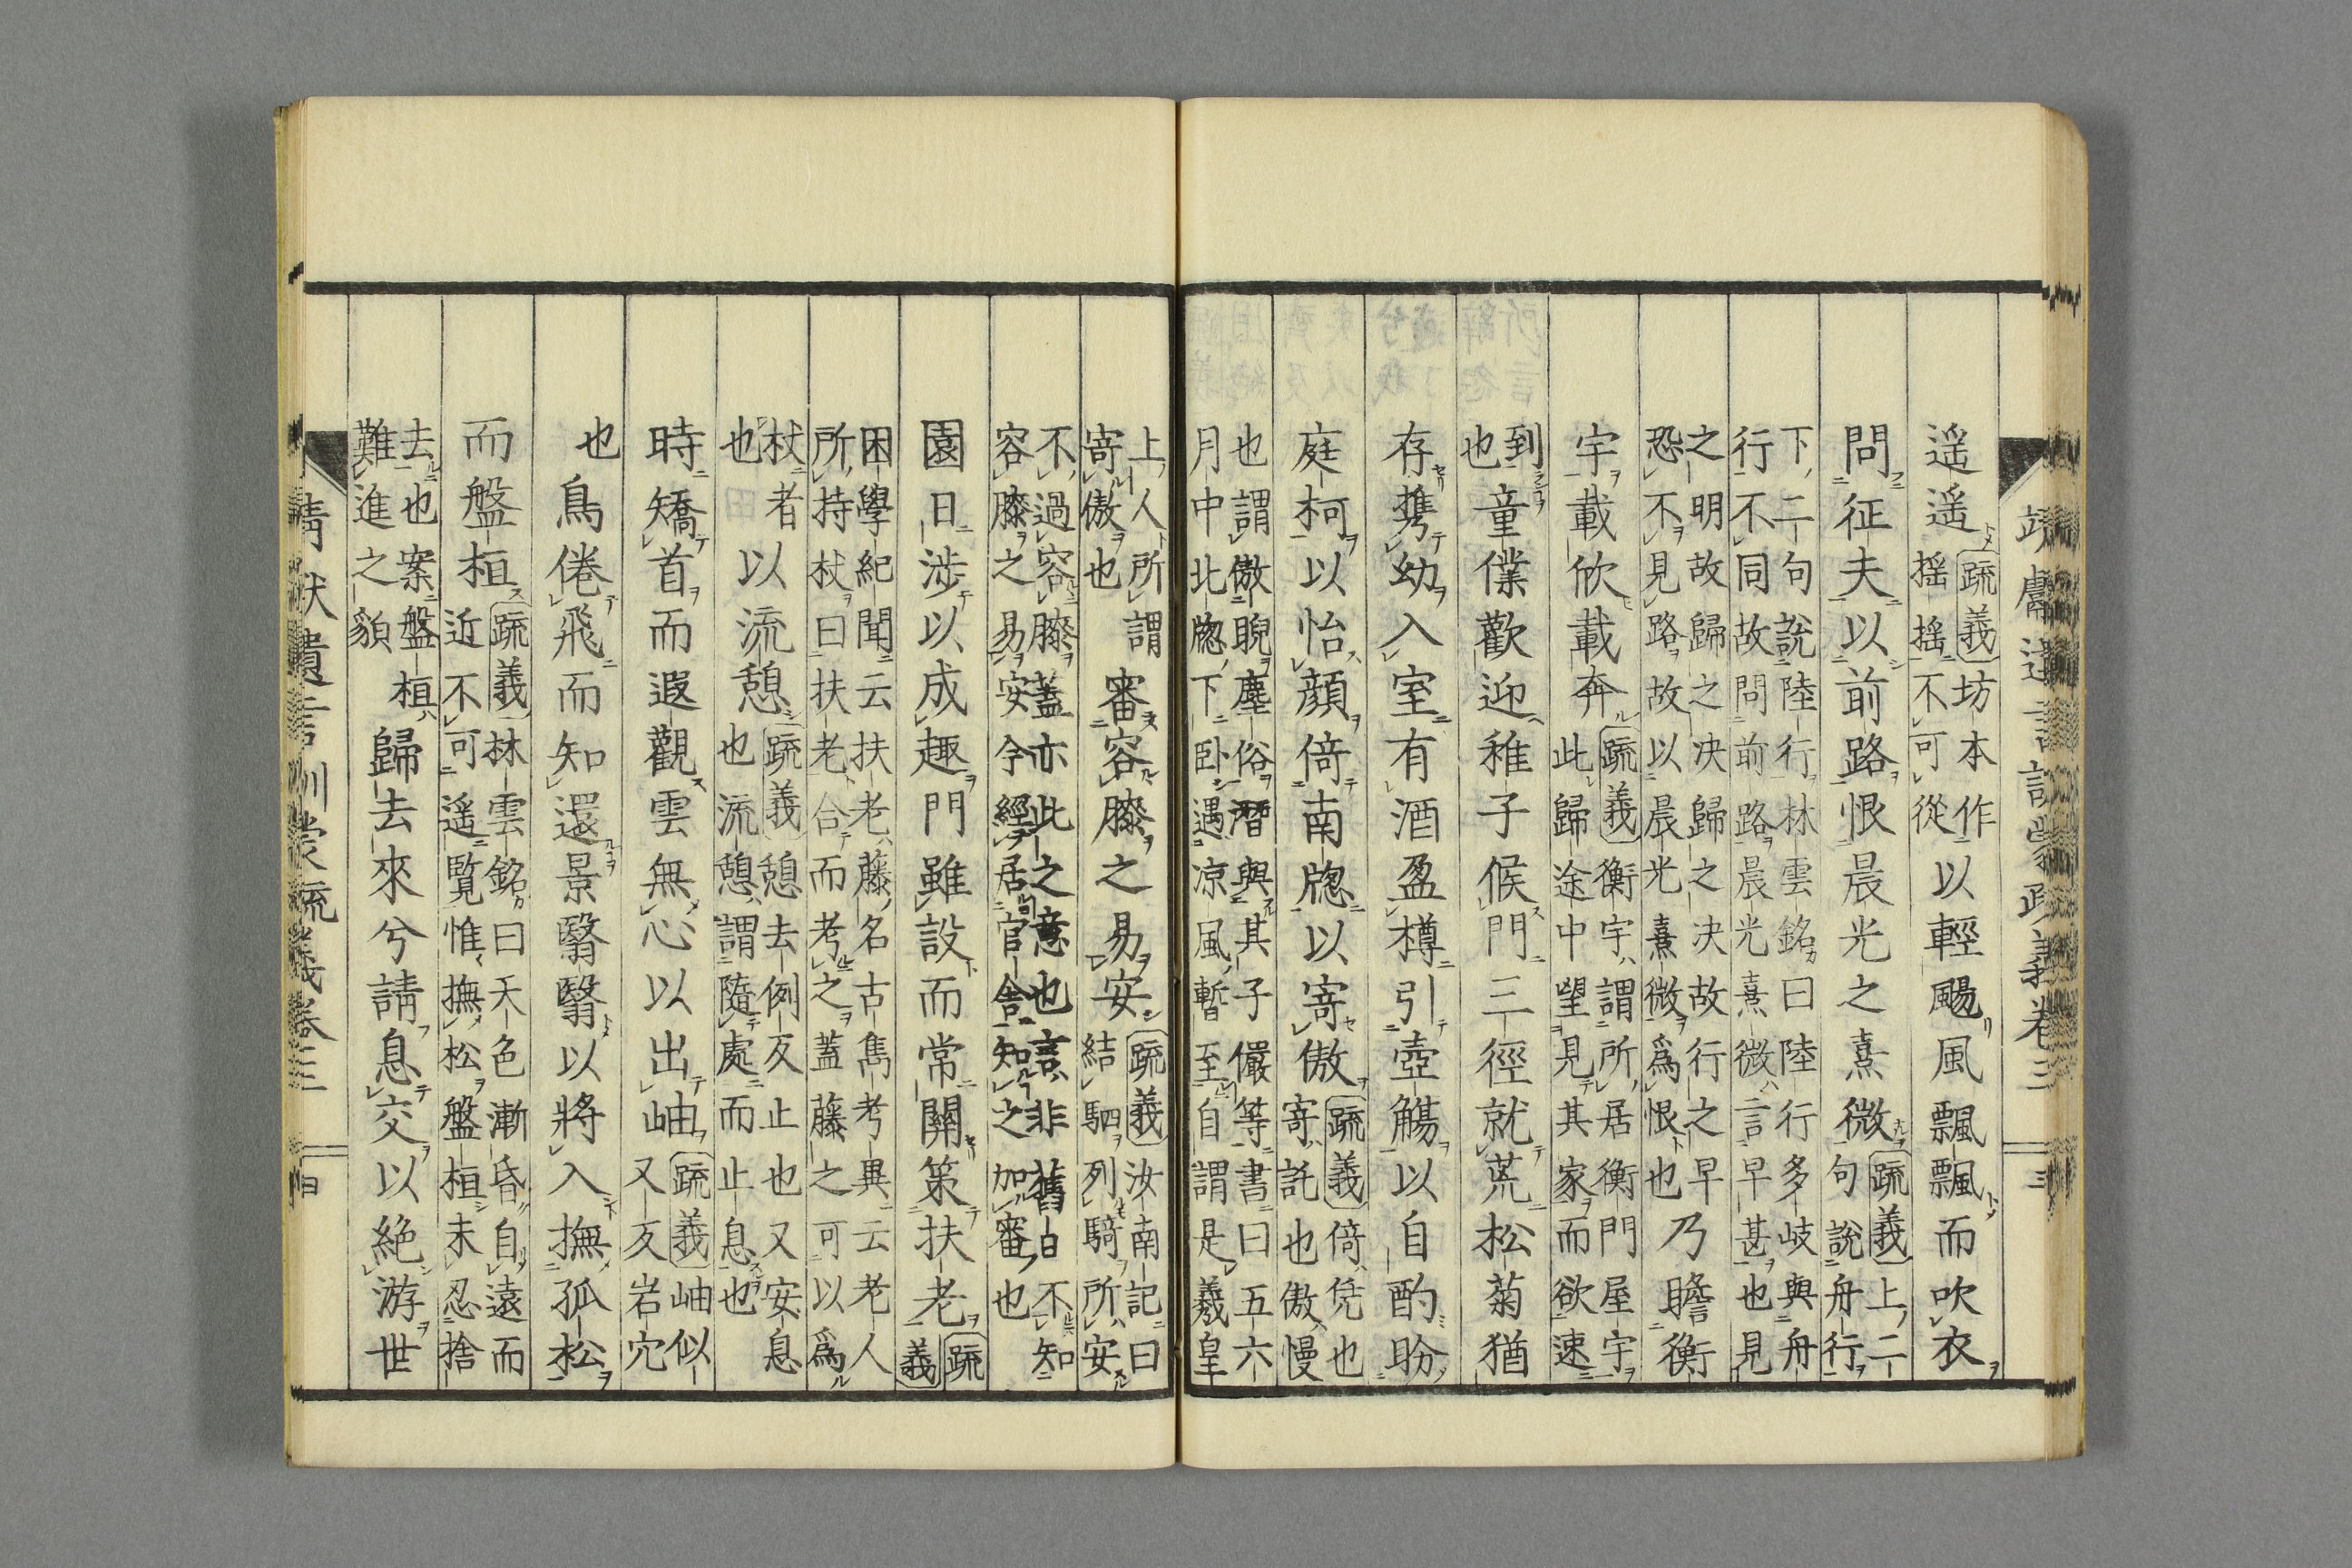 靖獻遺言訓蒙疏義卷三 三
遥遥疏義坊本作
揺揺不可從
以輕颺風飄飄而吹衣
問征夫以前路恨晨光之熹微疏義上二
句說舟行
下二句說陸行林雲銘曰陸行多岐與舟
行不同故問前路晨光熹微言早甚也見
之明故歸之决歸之决故行之早
恐不見路故以晨光熹微爲恨也
乃瞻衡
宇載欣載奔疏義衡宇謂所居衡門屋宇
此歸途中望見其家而欲速
到
也
童僕歡迎稚子候門三徑就荒松菊猶
存携幼入室有酒盈樽引壺觴以自酌眄
庭柯以怡顔倚南牕以寄傲疏義倚凭也
寄託也傲慢
也謂傲睨塵俗潛與其子儼等書曰五六
月中北牕下卧遇凉風暫至自謂是羲皇
上人所謂
寄傲也
審容膝之易安疏義汝南記曰
結駟列騎所安
不過容膝蓋亦此之意也言非舊白不知
容膝之易安今經居官舍知之加審也
園日涉以成趣門雖設而常關策扶老疏
義
困學紀聞云扶老藤名古雋考異云老人
所持杖曰扶老合而考之蓋藤之可以爲
杖者
也
以流憩疏義憩去例反止也又安息
也流憩謂隨處而止息也
時矯首而遐觀雲無心以出岫疏義岫似
又反岩穴
也鳥倦飛而知還景翳翳以將入撫孤松
而盤桓疏義林雲銘曰天色漸昏自遠而
近不可遥覧惟撫松盤桓未忍捨
去也案盤桓
難進之貌
歸去來兮請息交以絶游世
靖獻遺言訓蒙疏義卷三